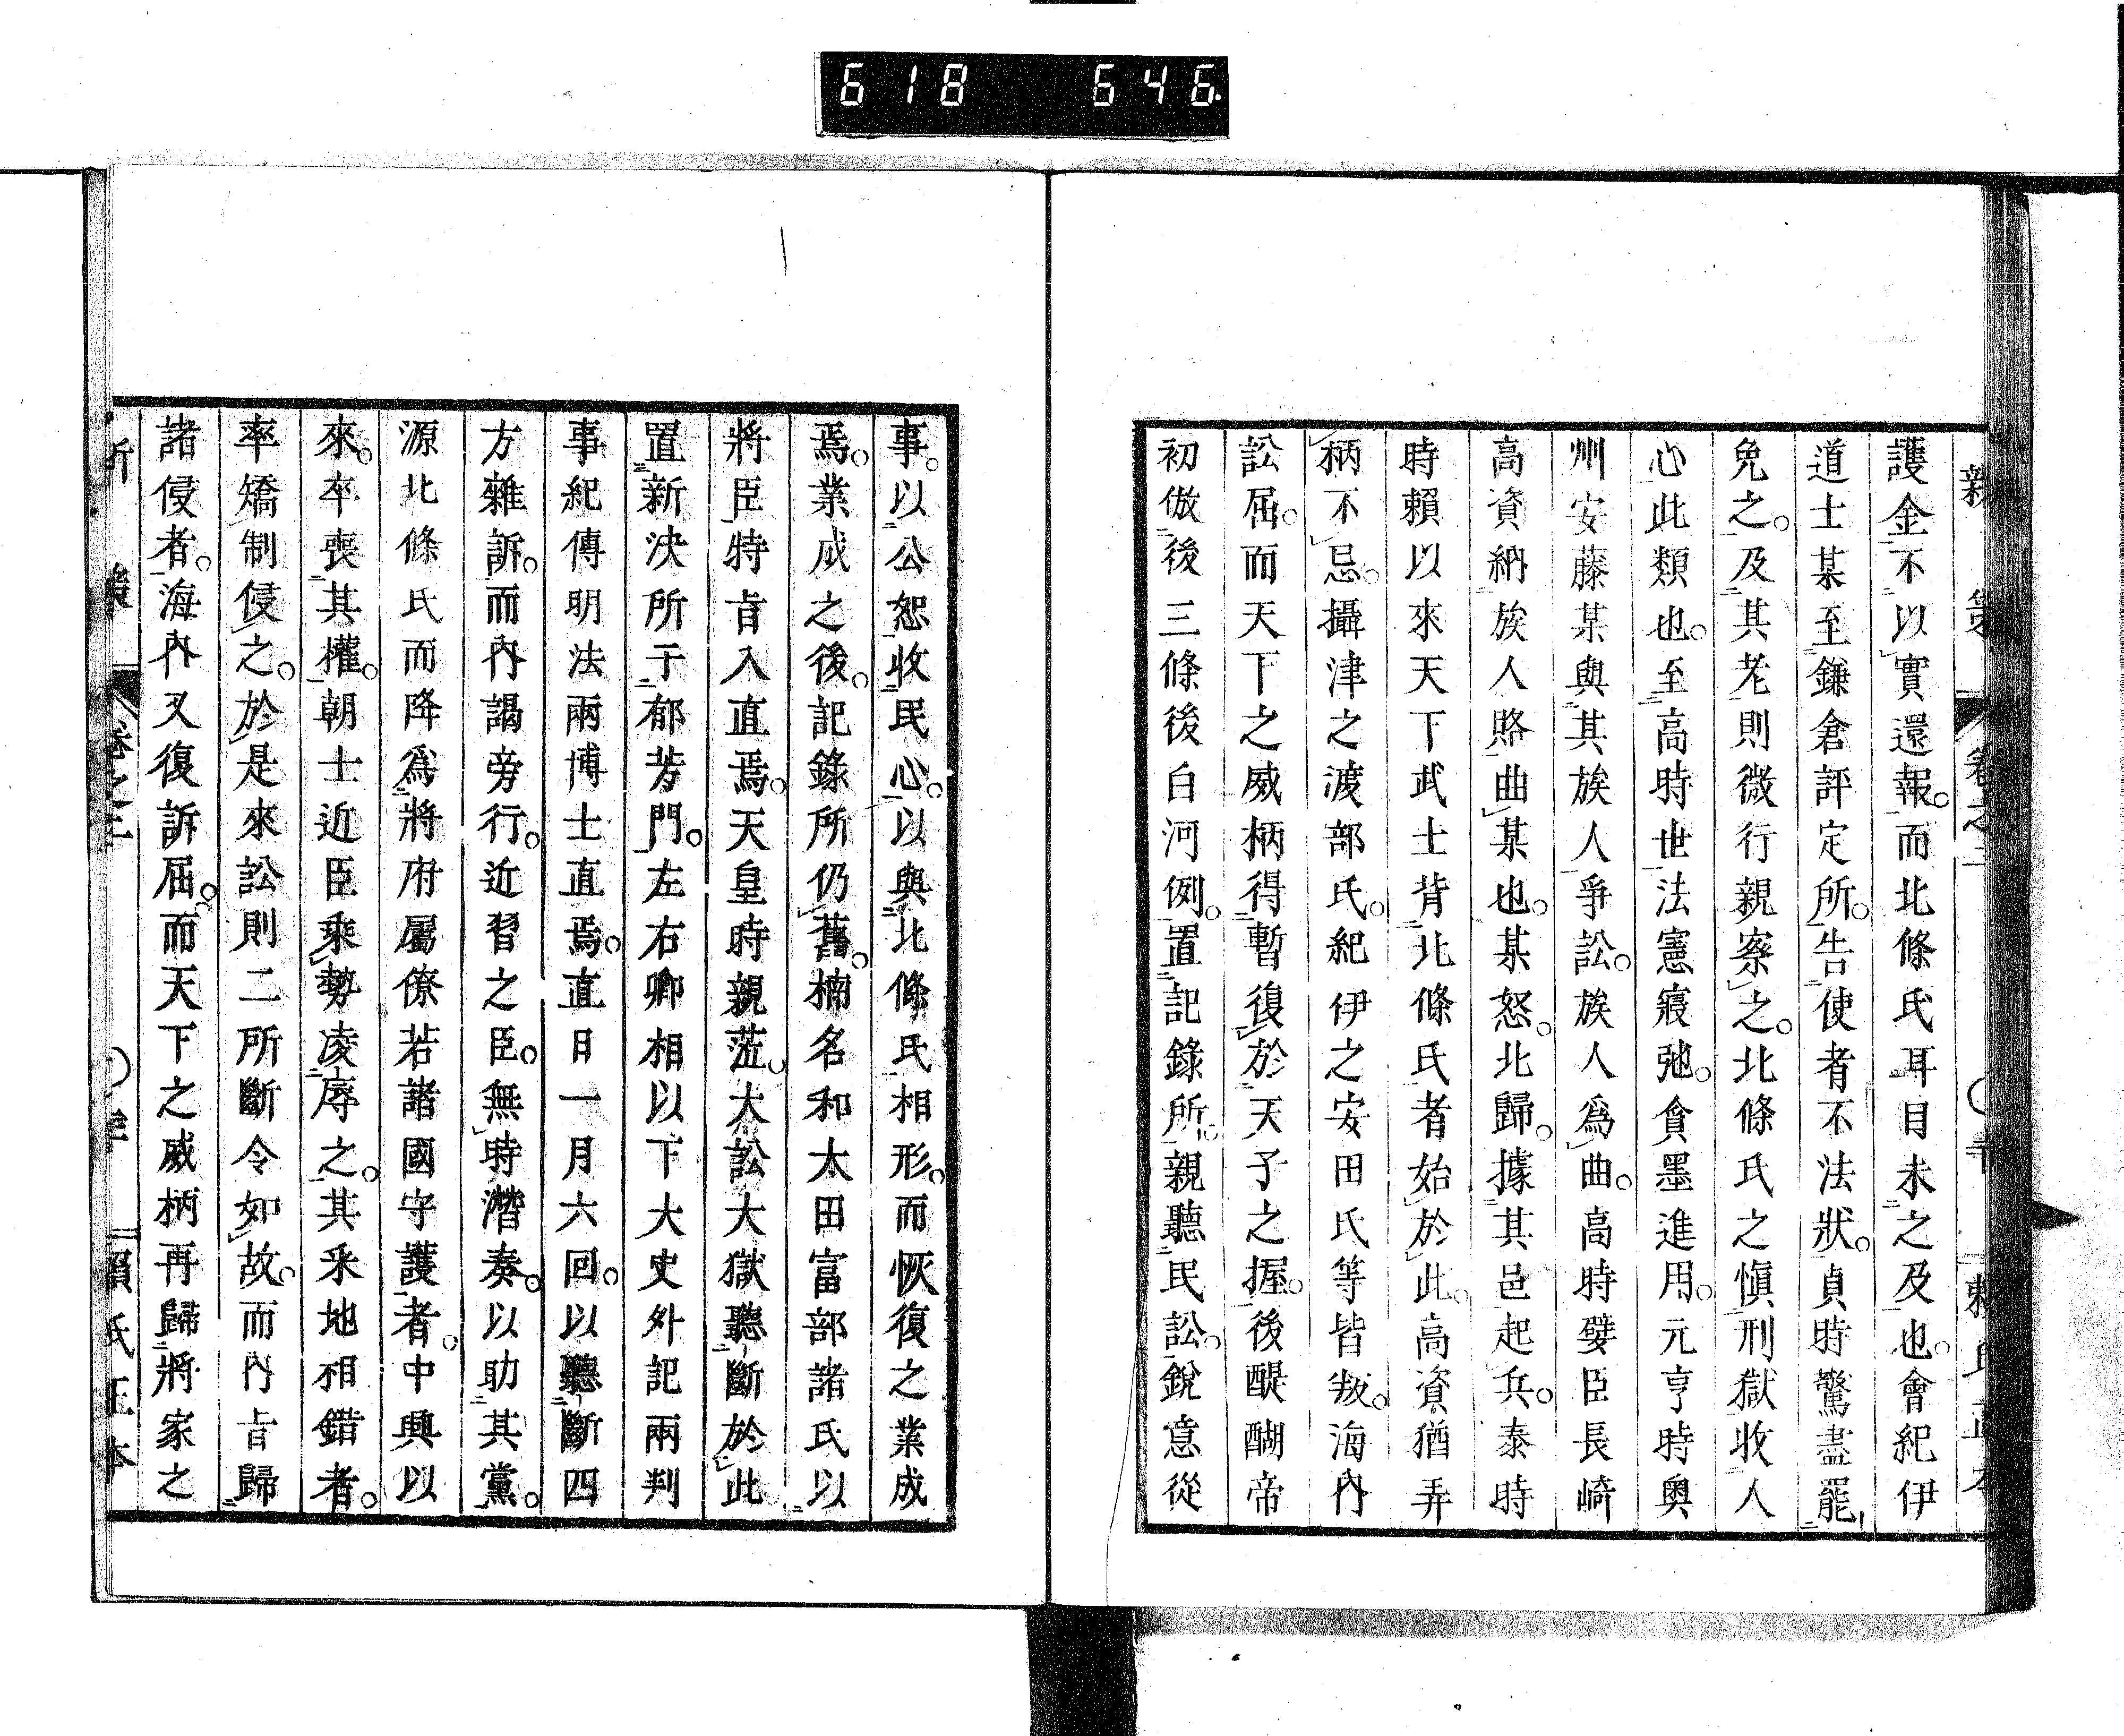 618 646
新策 卷之二 賴氏正本
護金不以實還報。而北條氏耳目未之及也。會紀伊
道士某至鎌倉評定所。告使者不法狀。貞時驚盡罷
免之。及其老則微行親察之。北條氏之愼刑獄收人
心此類也。至高時世法憲寢弛。貪墨進用。元亨時奧
州安藤某與其族人爭訟。族人爲曲。高時嬖臣長崎
高資納族人賂曲某也。某怒。北歸。據其邑起兵。泰時
時賴以來天下武士背北條氏者始於此。高資猶弄
柄不忌。攝津之渡部氏。紀伊之安田氏等皆叛。海內
訟屈。而天下之威柄得暫復於天子之握。後醍醐帝
初倣後三條後白河例。置記錄所。親聽民訟。銳意從
事。以公恕收民心。以與北條氏相形。而恢復之業成
焉。業成之後。記錄所仍舊。楠名和太田富部諸氏以
將臣特旨入直焉。天皇時親蒞。大訟大獄聽斷於此
置新決所于郁芳門。左右卿相以下大史外記兩判
事紀傳明法兩博士直焉。直日一月六回。以聽斷四
方雜訴。而內謁旁行。近習之臣。無時潛奏。以助其黨。
源北條氏而降爲將府屬僚若諸國守護者。中興以
來。卒喪其權。朝士近臣乘勢凌辱之。其釆地相錯者。
率矯制侵之。於是來訟則二所斷令如故。而內旨歸
諸侵者。海內又復訴屈。而天下之威柄再歸將家之